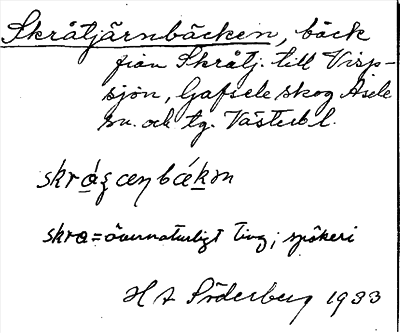 Skråtjärnbäcken, bäck
från Skråtj. till Visp-
sjön, Gafsele skog Åsele
sn. och tg. Västerbl.
skra=övernaturligt ting; spökeri
H A Söderberg 1933